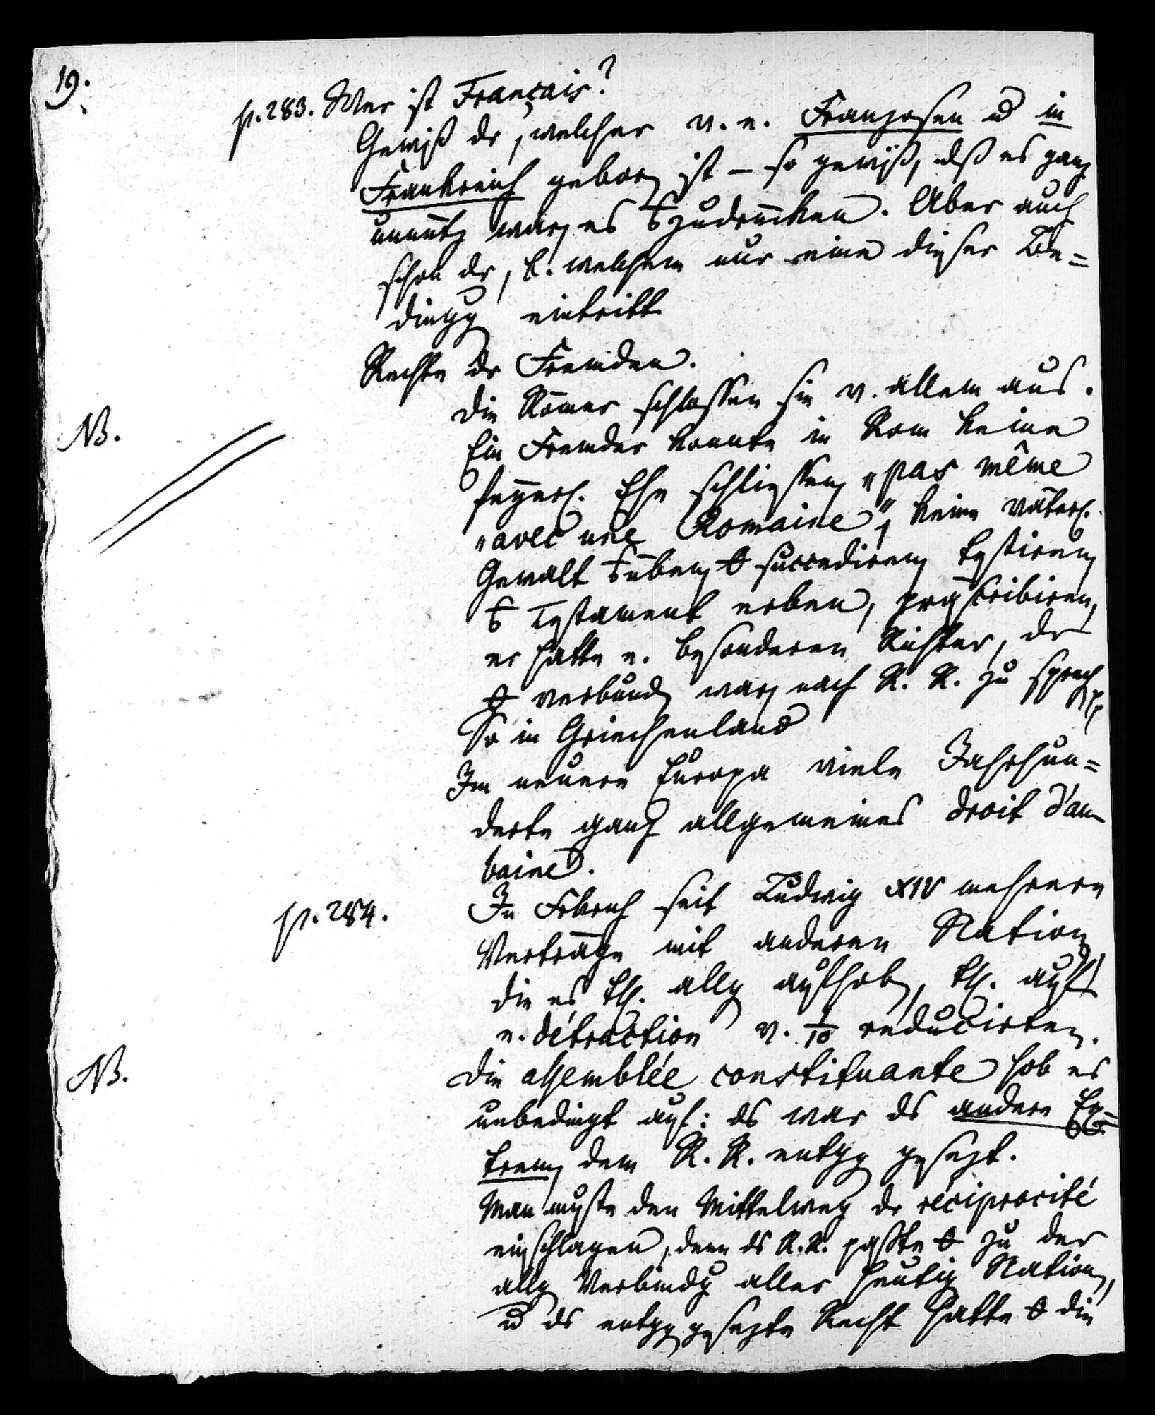 19.
p. 283. Wer ist Français?
Gewiß dr, welcher v. e. Franzosen u in
Frankreich gebor ist – so gewiß, dß es ganz
unnütz war, es szudrücken. Aber auch
schon dr, b. welchem nur eine dieser Be=
dingg eintritt
Rechte dr Fremden.
Die Römer schlossen sie v. allem aus.
NB.
Ein Fremder konnte in Rom keine
feyerl. Ehe schliessen, „pas même
„avec une Romaine“, keine väterl.
Gewalt süben, succediren, testiren,
Testament erben, präscribiren,
er hatte e. besonderen Richter, dr
verbund war, nach R. R. zu sprech
So in Griechenland
Im neuern Europa viele Jahrhun=
derte ganz allgemeines droit d'au-
baine.
p. 284.
In Frkrch seit Ludwig XIV mehrere
Verträge mit anderen Nation,
die es thl. allg aufhob, thl. auf
e. détraction v. 1/10 reducirten.
NB.
Die assemblée constituante hob es
unbedingt auf: ds war ds andere Ex=
trem, dem R. R. entgg gesezt.
Man mußte den Mittelweg dr réciprocité
einschlagen, denn ds R. R. paßte zu der
allg Verbindg aller heutig Nation,
u ds entgggesezte Recht hatte die